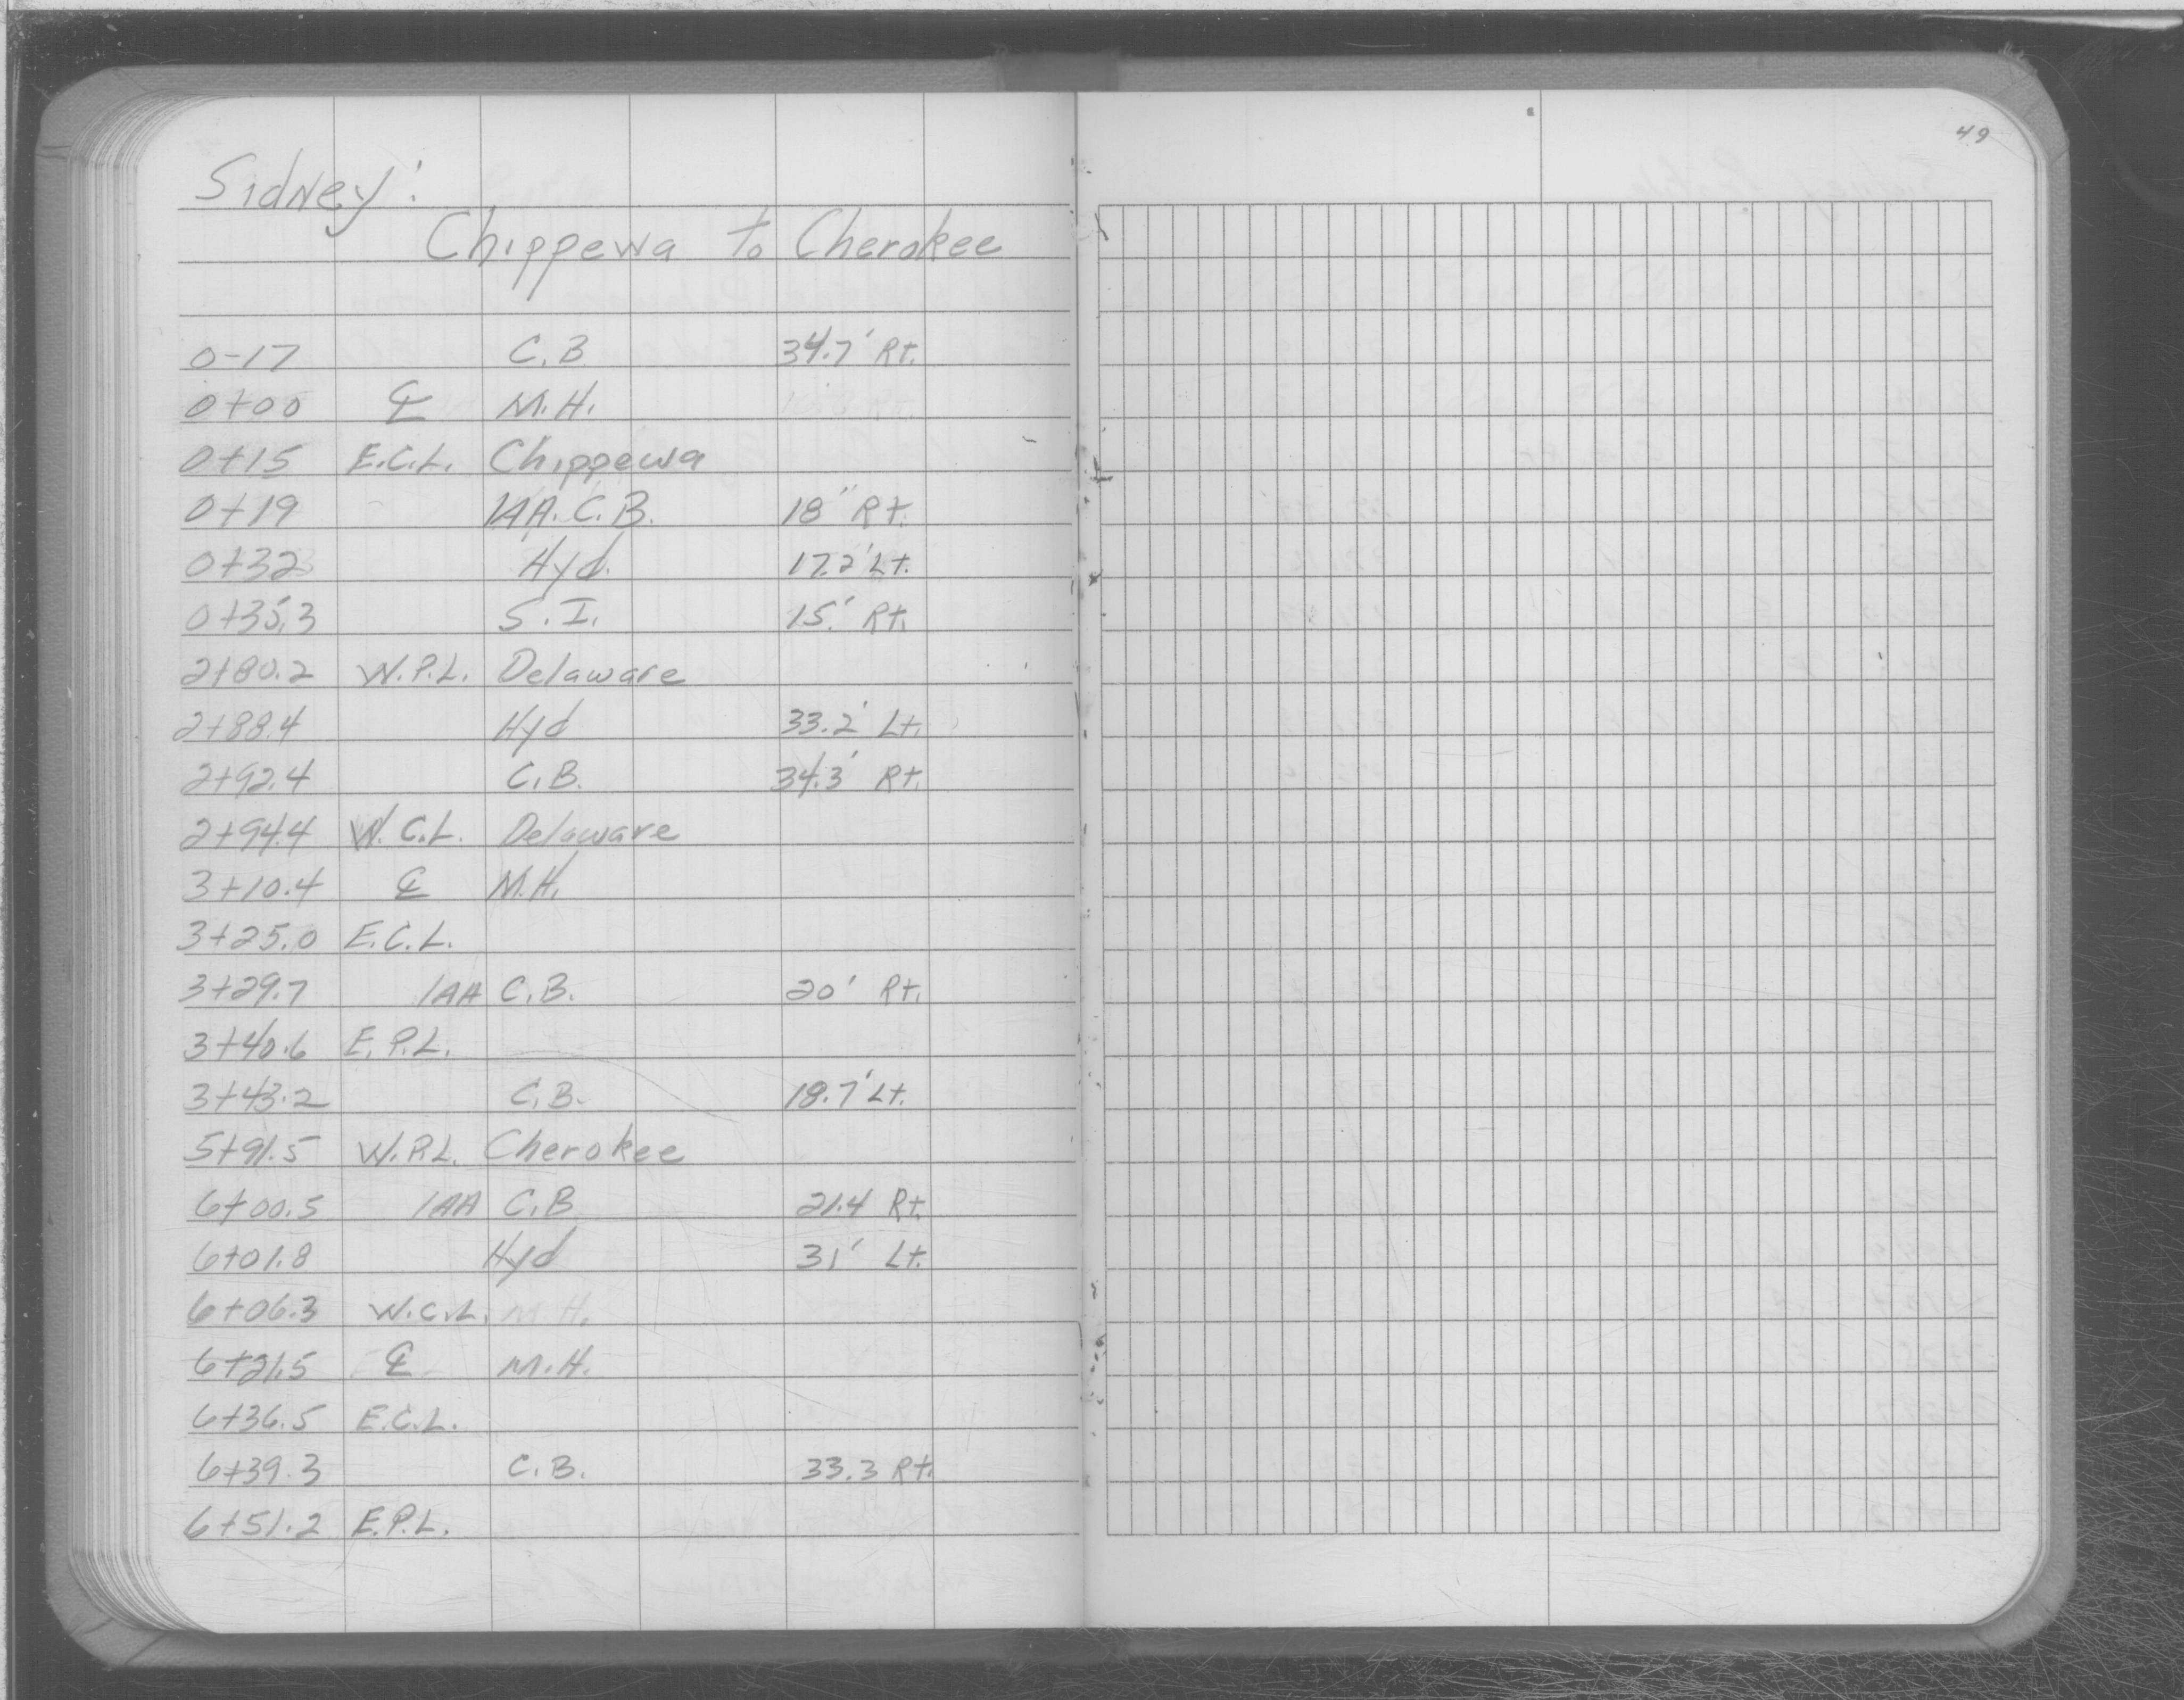 49
Sidney:
Chippewa to Cherokee
0-17 C.B. 34.7' Rt.
0+00 ℄ M.H.
0+15 E.C.L. Chippewa
0+19 1AA. C.B. 18" Rt.
0+32 Hyd. 17.2' Lt.
0+35.3 S.I. 15' Rt.
2+80.2 W.P.L. Delaware
2+88.4 Hyd 33.2' Lt.
2+92.4 C.B. 34.3' Rt.
2+94.4 W.C.L. Delaware
3+10.4 ℄ M.H.
3+25.0 E.C.L.
3+29.7 1AA C.B. 20' Rt.
3+40.6 E.P.L.
3+43.2 C.B. 18.7' Lt.
5+91.5 W.P.L. Cherokee
6+00.5 1AA C.B 21.4 Rt.
6+01.8 Hyd 31' Lt.
6+06.3 W.C.L. M.H.
6+21.5 ℄ M.H.
6+36.5 E.C.L.
6+39.3 C.B. 33.3 Rt.
6+51.2 E.P.L.